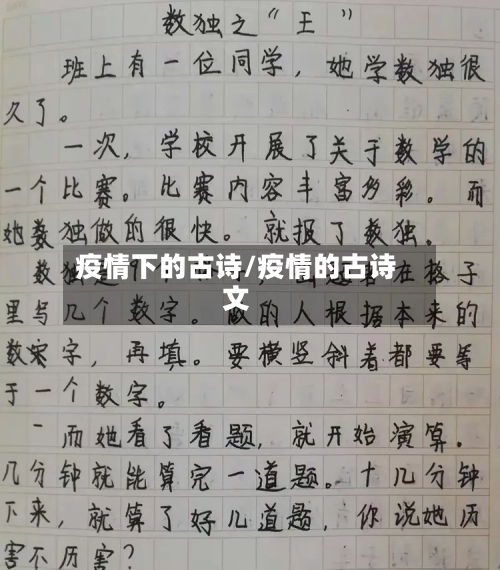 数独之“王”
班上有一位同学，她学数独很
久了。
一次，学校开展了关于数学的
一个比赛。比赛内容丰富多彩。而
她数独做的很快。就报了数独。
疫情下的古诗/疫情的古诗
文
数独是 在格子
里写几个数字。做的人根据本来的
数字，再填。要横竖斜着都要等
于一个数字。
而她看了看题，就开始演算。
几分钟就能算完一道题。十几分钟
下来，就算了好几道题，你说她历
害不历害？